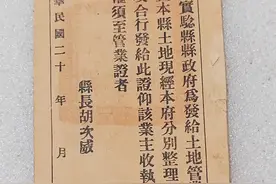 實驗縣縣政府爲發給土地管
本縣土地現經本府分別整理
合行發給此證仰該業主收執
須至管業證者
縣長胡次威
民國二十年月